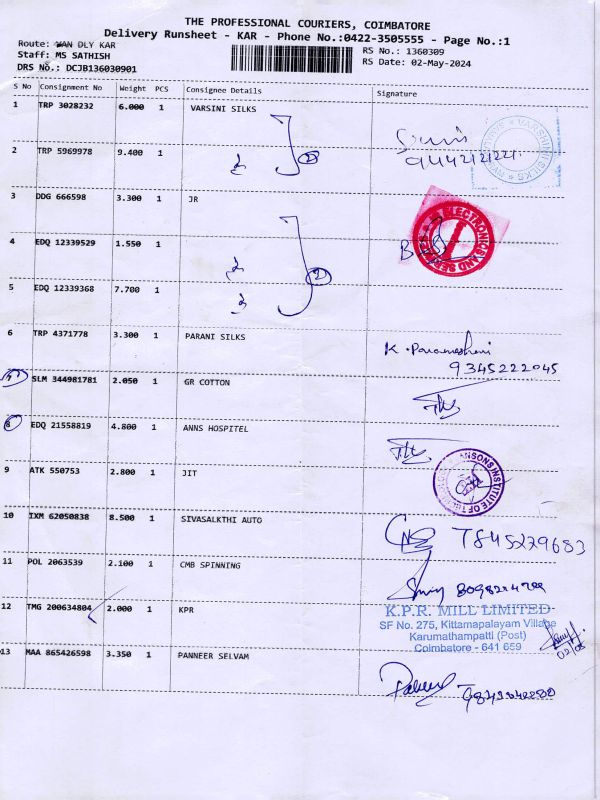 THE PROFESSIONAL COURIERS, COIMBATORE
Delivery Runsheet - KAR - Phone No.:0422-3505555 - Page No.:1
Route: VAN DLY KAR
Staff: MS SATHISH
DRS No.: DCJB136030901
RS No.: 1360309
RS Date: 02-May-2024
S No Consignment No Weight PCS Consignee Details Signature
1 TRP 3028232 6.000 1 VARSINI SILKS
9442121221
VARSHINI SILKS
2 TRP 5969978 9.400 1 2
3 DDG 666598 3.300 1 JR
ELECTRONICS AND
4 EDQ 12339529 1.550 1
2
5 EDQ 12339368 7.700 1
6 TRP 4371778 3.300 1 PARANI SILKS K. Parameshwari
9345222045
7 SLM 344981781 2.050 1 GR COTTON
8 EDQ 21558819 4.800 1 ANNS HOSPITEL
9 ATK 550753 2.800 1 JIT
INSTITUTE OF
10 IXM 62050838 8.500 1 SIVASALKTHI AUTO
7845279683
11 POL 2063539 2.100 1 CMB SPINNING
12 TMG 200634804 2.000 1 KPR
K.P.R. MILL LIMITED
SF No. 275, Kittamapalayam Village
Karumathampatti (Post)
Coimbatore - 641 659
02/05
13 MAA 865426598 3.350 1 PANNEER SELVAM